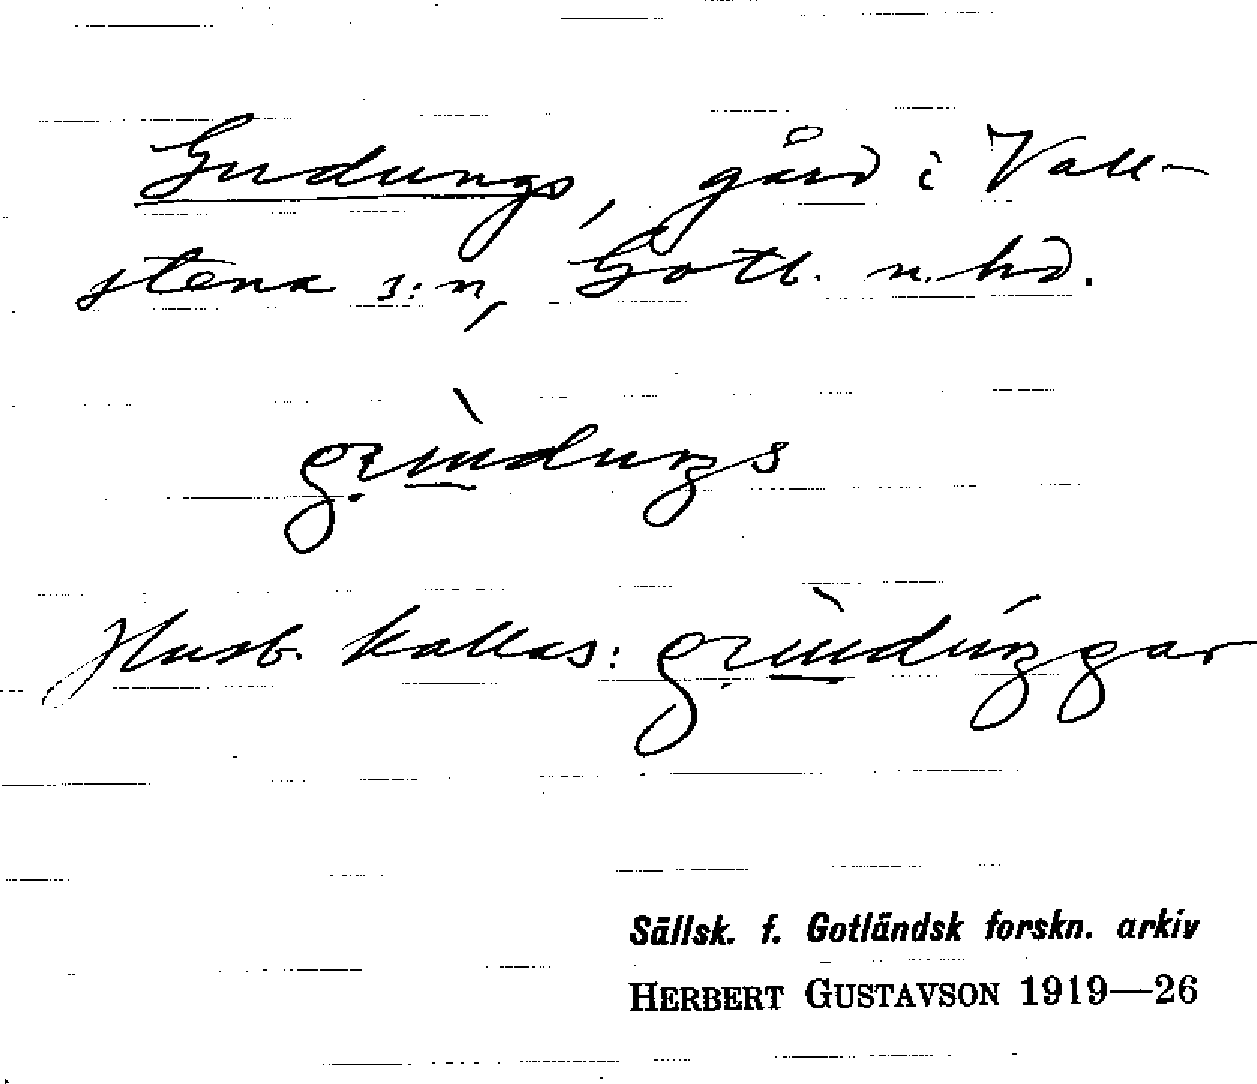 Gudungs, gård i Vall-
stena s:n, Gotl. n. hd.
Husb. kallas:
Sällsk. f. Gotländsk forskn. arkiv
HERBERT GUSTAVSON 1919—26